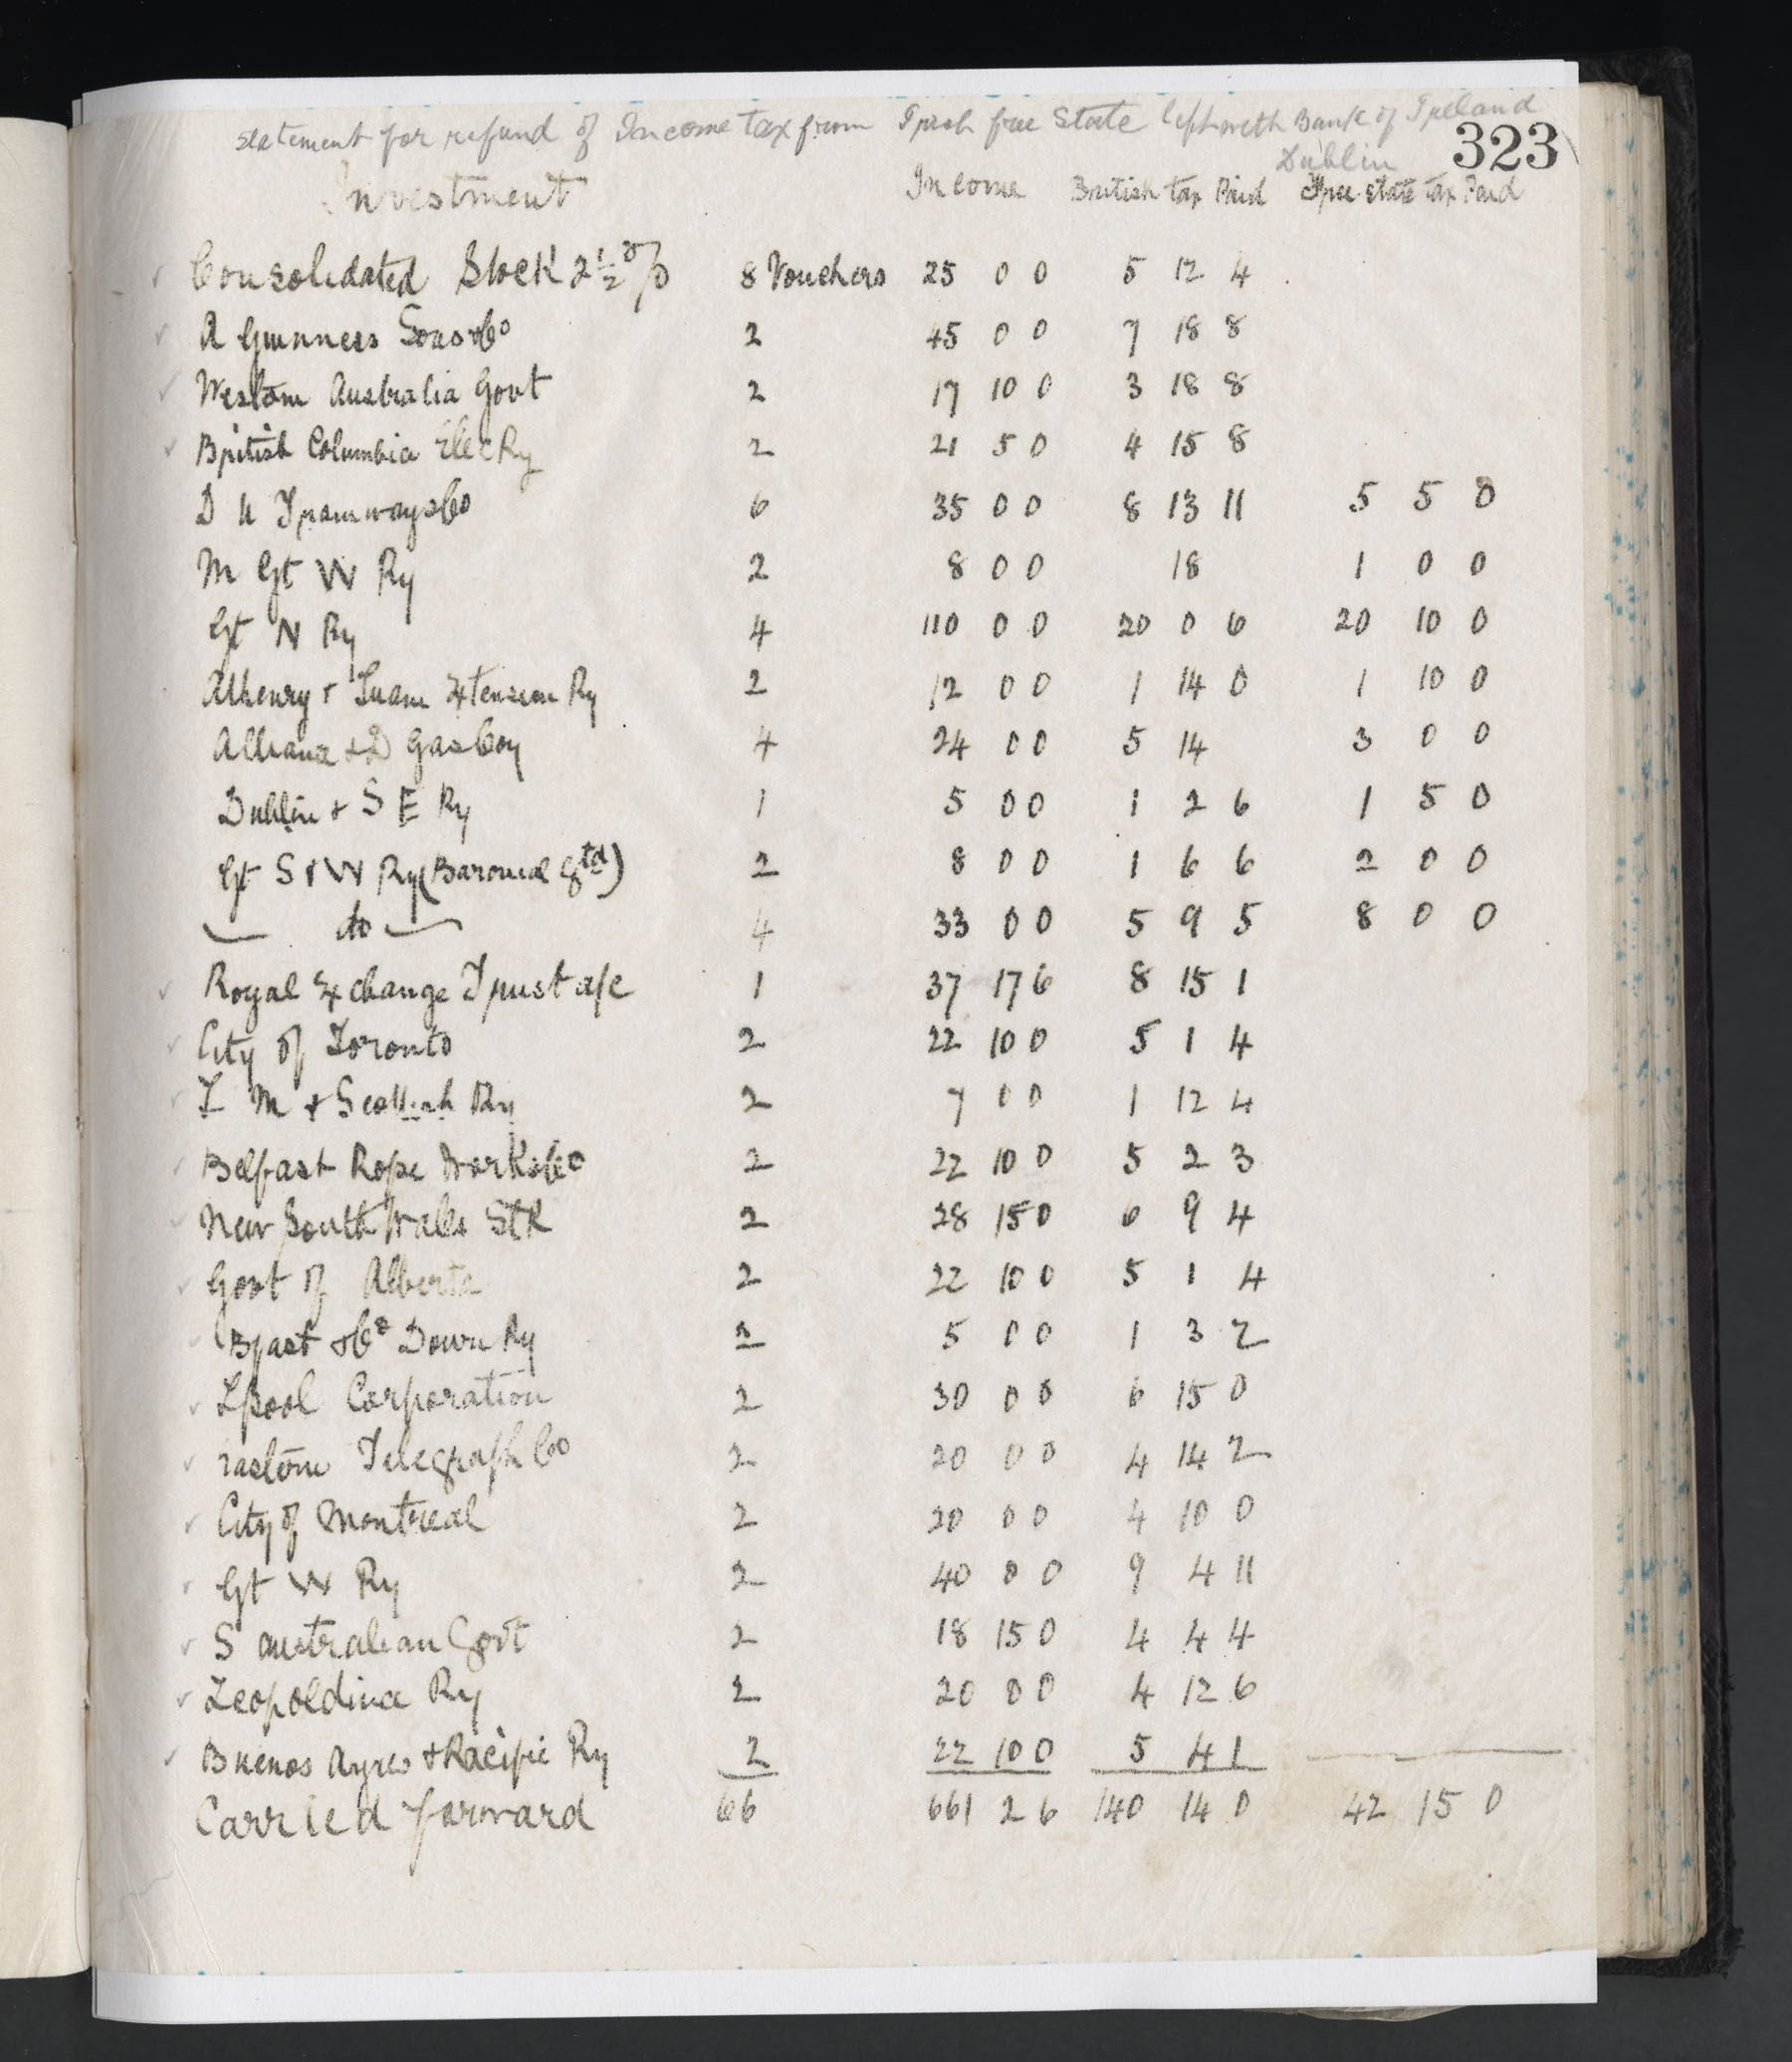 Statement for refund of Income tax from Irish free State left with Bank of Ireland
Dublin 323
Investment Income British tax Paid Free state tax Paid
Consolidated Stock 2½ % 8 Vouchers 25 0 0 5 12 4
A Guinness Sons & Co 2 45 0 0 7 18 8
Western Australia Govt 2 17 10 0 3 18 8
British Columbia Elec Ry 2 21 5 0 4 15 8
D U Tramways Co 6 35 0 0 8 13 11 5 5 0
M Gt W Ry 2 8 0 0 18 1 0 0
Gt N Ry 4 110 0 0 20 0 6 20 10 0
Athenry & Tuam Extension Ry 2 12 0 0 1 14 0 1 10 0
Alliance & D Gas Coy 4 24 0 0 5 14 3 0 0
Dublin & S E Ry 1 5 0 0 1 2 6 1 5 0
Gt S & W Ry (Baronial gtd) 2 8 0 0 1 6 6 2 0 0
do 4 33 0 0 5 9 5 8 0 0
Royal Exchange Trust a/c 1 37 17 6 8 15 1
City of Toronto 2 22 10 0 5 1 4
L M & Scottish Ry 2 7 0 0 1 12 4
Belfast Rope Works Co 2 22 10 0 5 2 3
New South Wales Stk 2 28 15 0 6 9 4
Govt of Alberta 2 22 10 0 5 1 4
Bfast & Co Down Ry 2 5 0 0 1 3 2
Lpool Corporation 2 30 0 0 6 15 0
Eastern Telegraph Co 2 20 0 0 4 14 2
City of Montreal 2 20 0 0 4 10 0
Gt W Ry 2 40 0 0 9 4 11
S Australian Govt 2 18 15 0 4 4 4
Leopoldina Ry 2 20 0 0 4 12 6
Buenos Ayres & Pacific Ry 2 22 10 0 5 4 1
Carried forward 66 661 2 6 140 14 0 42 15 0